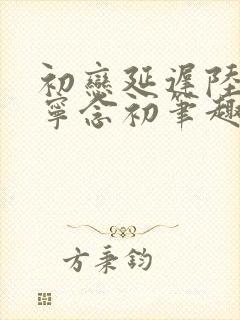 初戀延遲陸
寧念初筆趣
方秉鈞